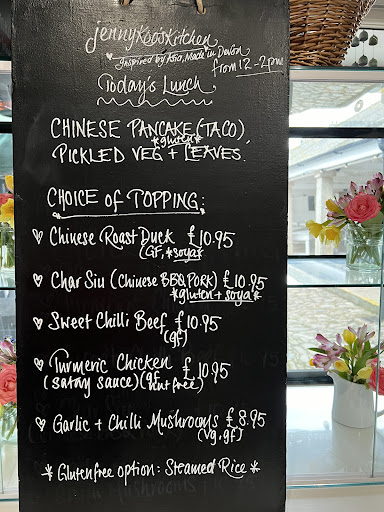 jennyKoosKitchen
Inspired by Asia, Made in Devon
from 12-2pm
Today's Lunch
CHINESE PANCAKE (TACO),
*gluten*
PICKLED VEG + LEAVES.
CHOICE of TOPPING:
Chinese Roast Duck £10.95
(GF, *soya*
Char Siu (Chinese BBQ PORK) £10.95
*gluten + soya*
Sweet Chilli Beef £10.95
(gf)
Turmeric Chicken £10.95
(Satay sauce) (gf nut free)
Garlic + Chilli Mushrooms £8.95
(vg, gf)
* Glutenfree option: Steamed Rice *